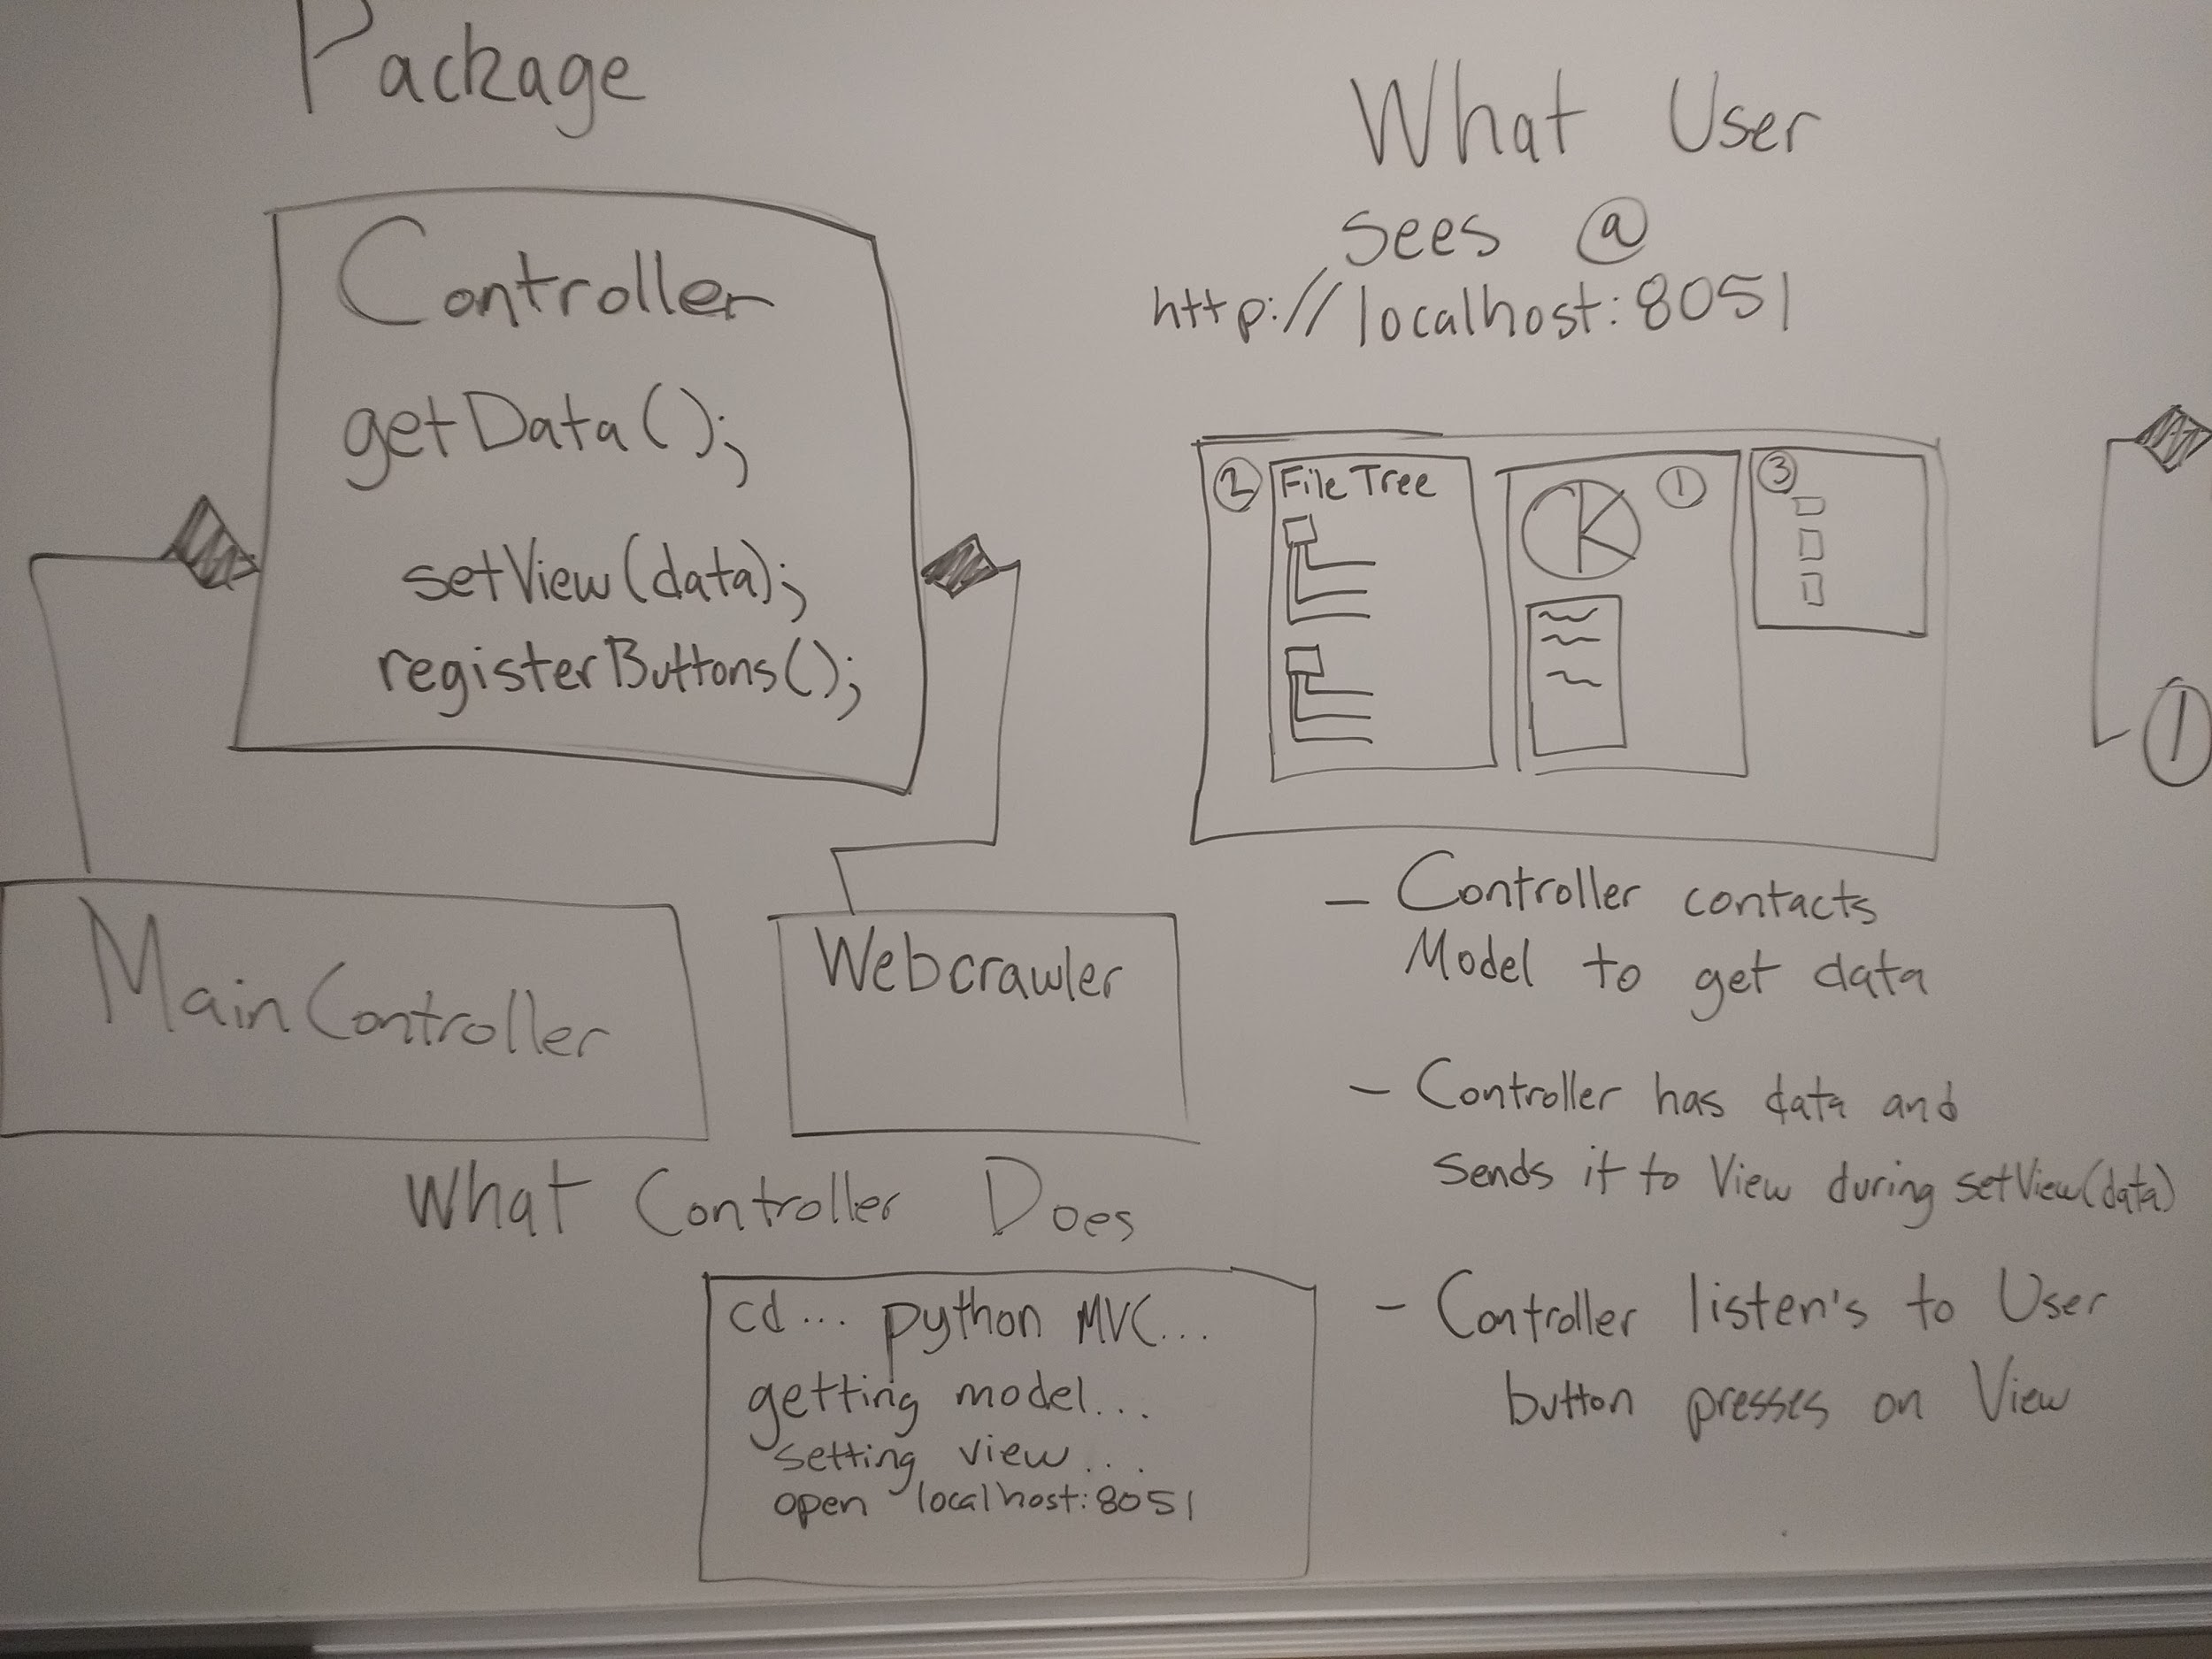 Package
Controller
getData();
setView(data);
registerButtons();
MainController
Webcrawler
What Controller Does
cd... python MVC...
getting model...
setting view...
open localhost:8051
What User
sees @
http://localhost:8051
② File Tree
①
③
- Controller contacts
Model to get data
- Controller has data and
sends it to View during setView(data)
- Controller listen's to User
button presses on View
①